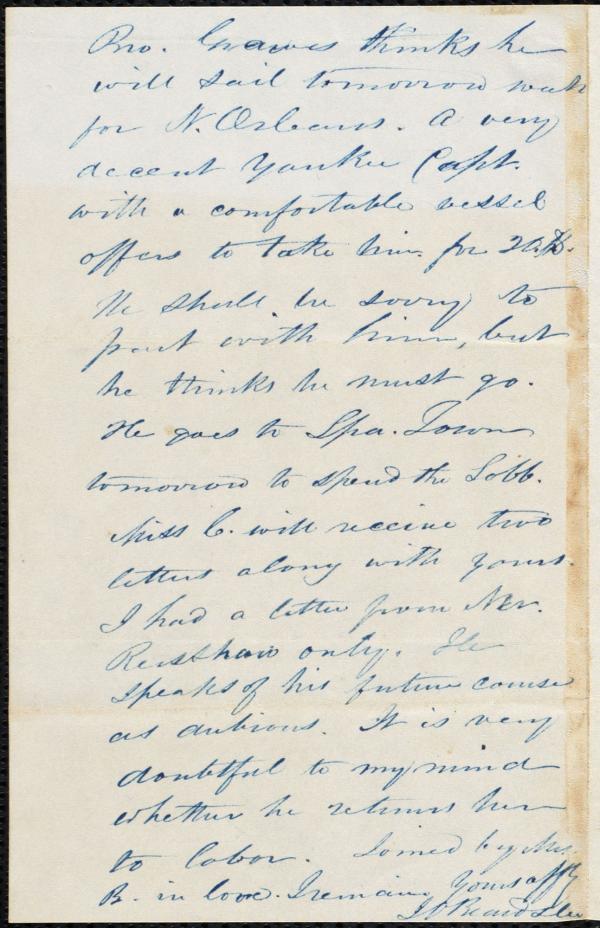 Bro. Graves thinks he
will sail tomorrow week
for N. Orleans. A very
decent Yankee Capt.
with a comfortable vessel
offers to take him for
We shall be sorry to
part with him, but
he thinks he must go.
He goes to Spa. Town
tomorrow to spend the Sabb.
Miss C. will receive two
letters along with yours.
I had a letter from
Renshaw only. He
speaks of his future course
as dubious. It is very
doubtful to my mind
whether he returns here
to labor. Joined by Mrs.
B. in love. I remain Yours affly
Beardslee